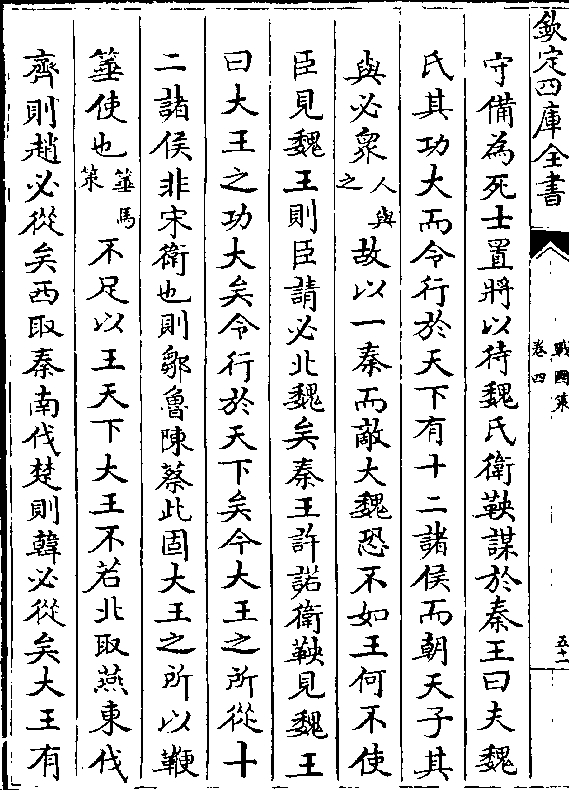 欽定四庫全書
戰國策
卷四
守備為死士置將以待魏氏衛鞅謀於秦王曰夫魏
氏其功大而令行於天下有十二諸侯而朝天子其
與必衆人與之故以一秦而敵大魏恐不如王何不使
臣見魏王則臣請必北魏矣秦王許諾衛鞅見魏王
曰大王之功大矣令行於天下矣今大王之所從十
二諸侯非宋衛也則鄒魯陳蔡此固大王之所以鞭
箠使也箠馬策不足以王天下大王不若北取燕東伐
齊則趙必從矣西取秦南伐楚則韓必從矣大王有